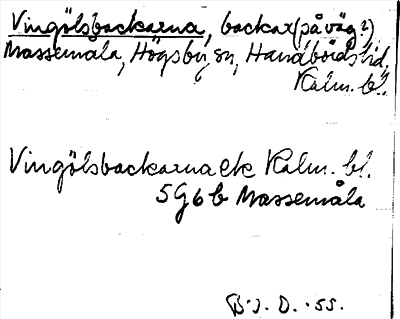 Vingölsbackarna, backar (på väg?)
Massemåla, Högsby sn, Handbörds hd,
Kalm. l.
Vingölsbackarna ek Kalm. bl.
5G6b Massemåla
B.J. D. -55.